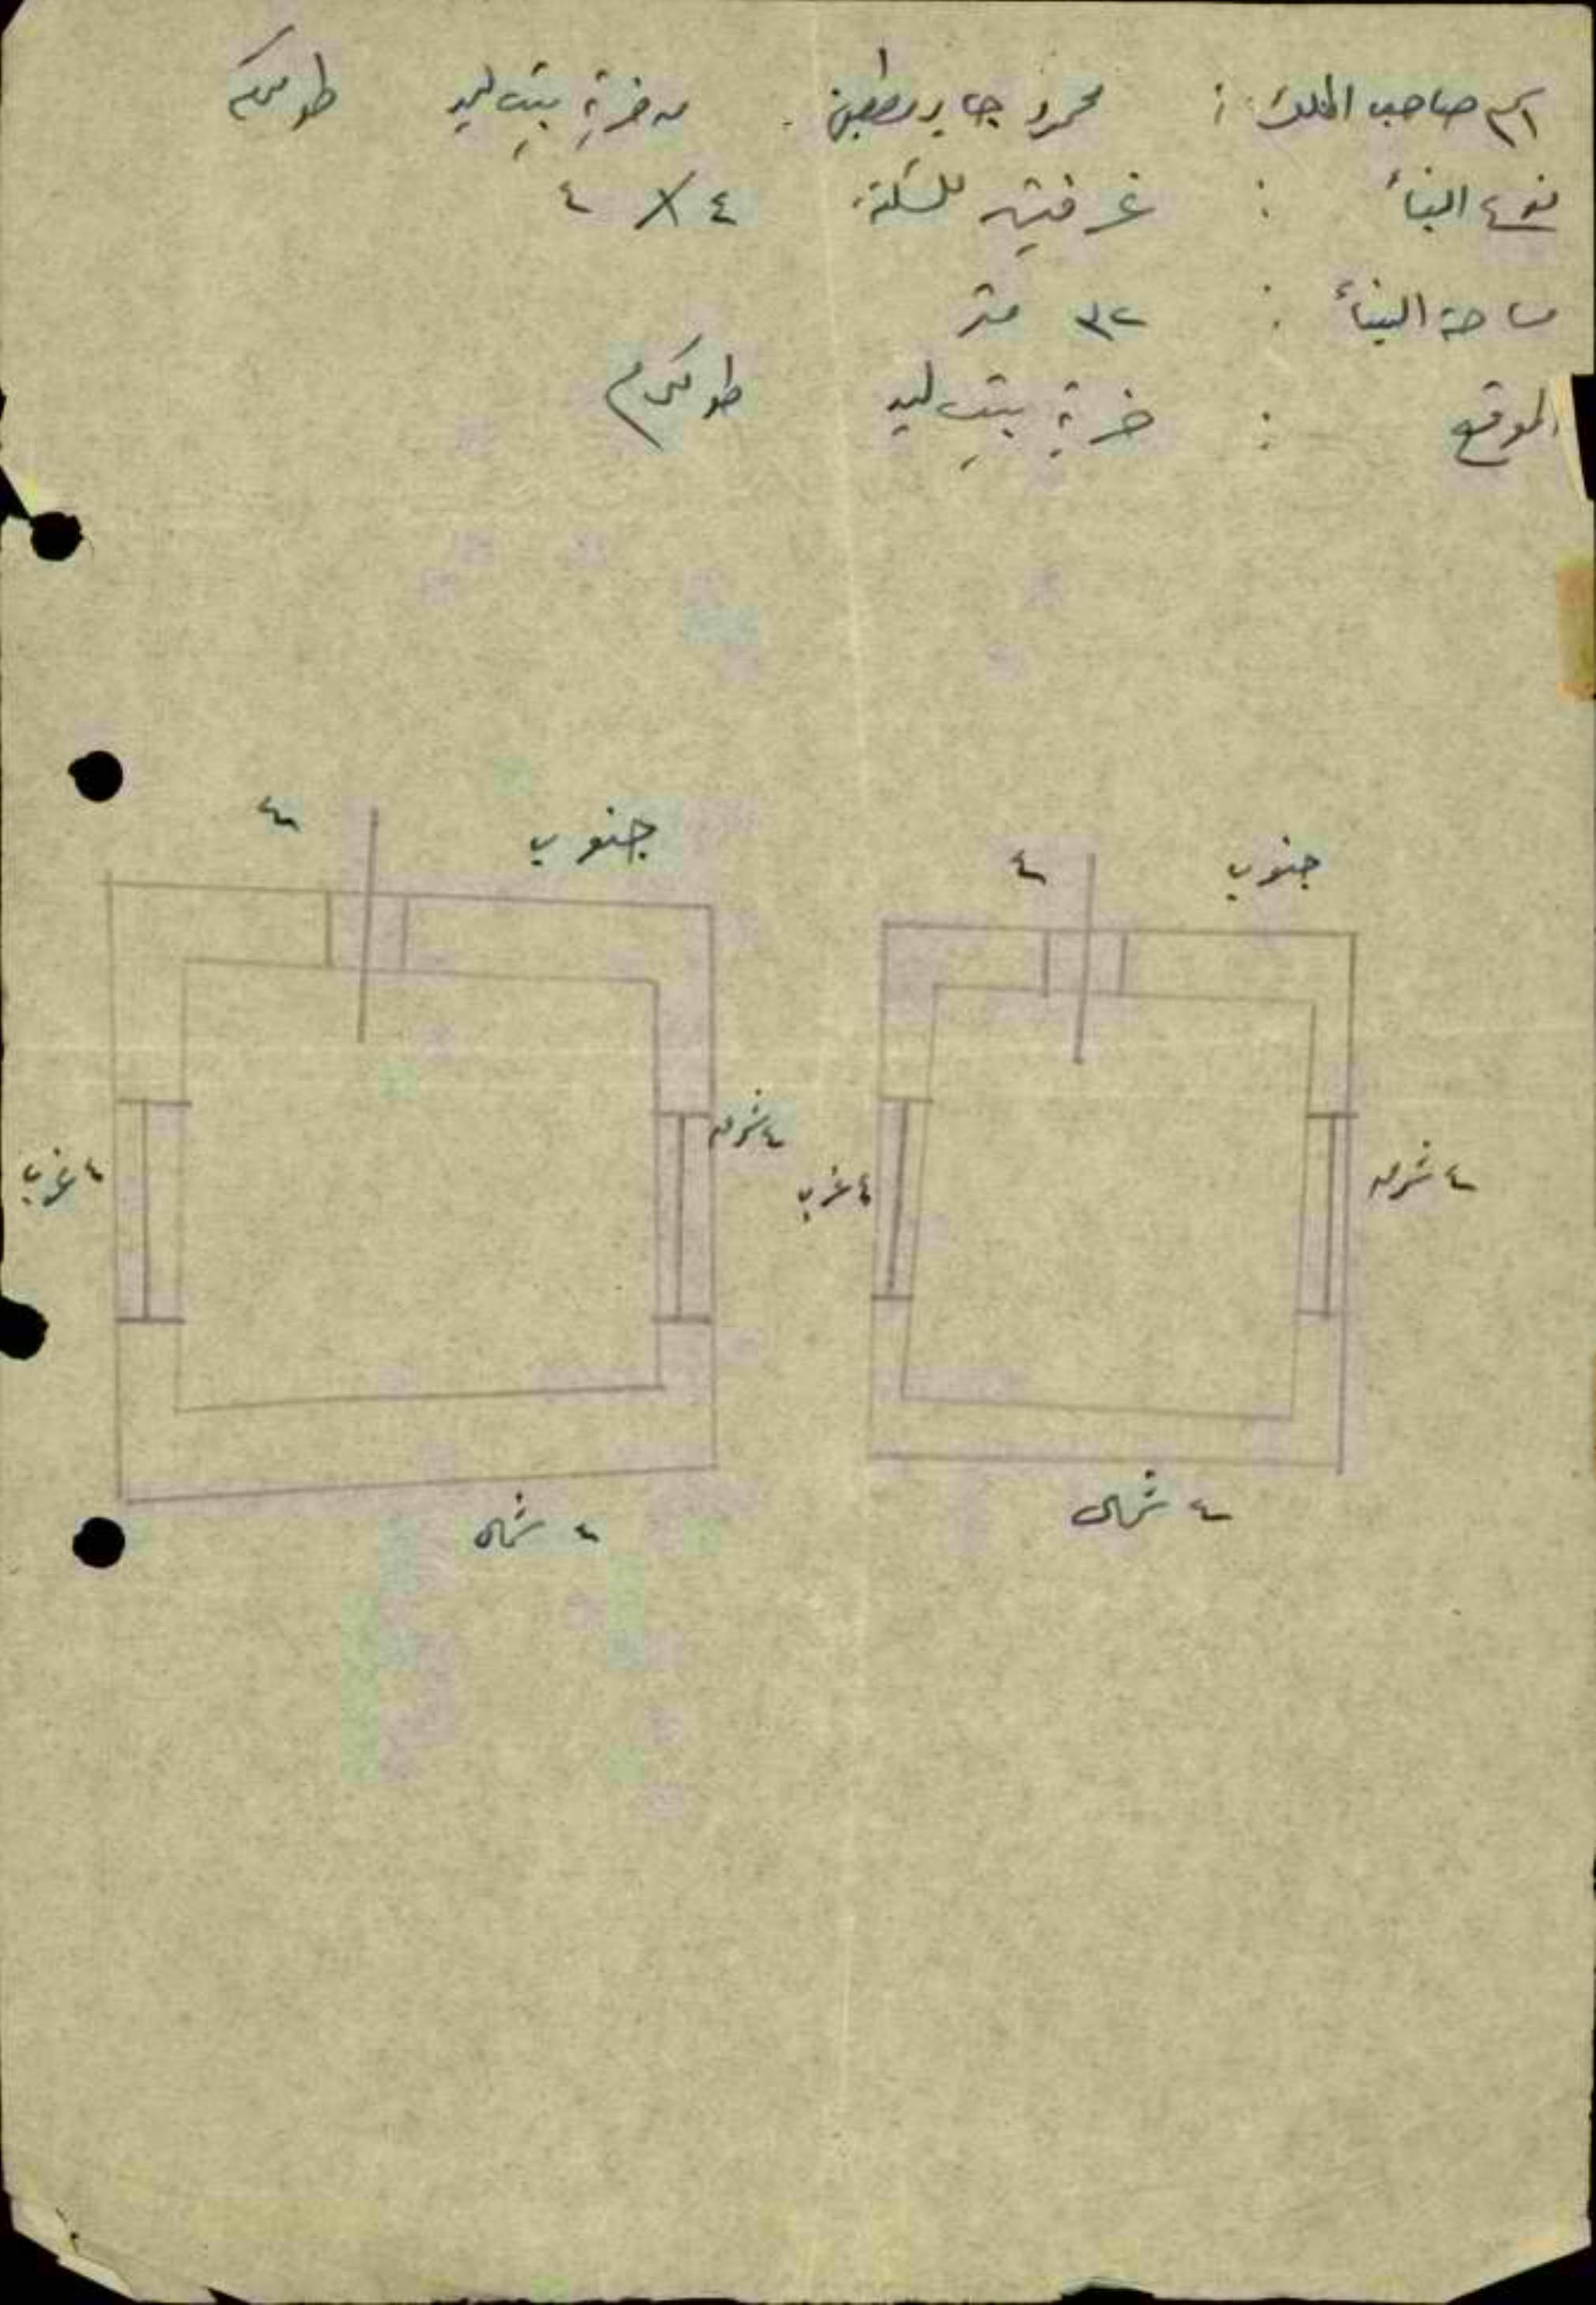 اسم صاحب الملك : محمود جابر من خربة بيت ليد طولكرم
نوع البناء : غرفتين للسكن ٤ × ٤
مساحة البناء : ٣٢ متر
الموقع : خربة بيت ليد طولكرم
جنوب ٤
جنوب ٤
٤ شرق
٤ غرب
٤ شرق
٤ غرب
٤ شمال
٤ شمال